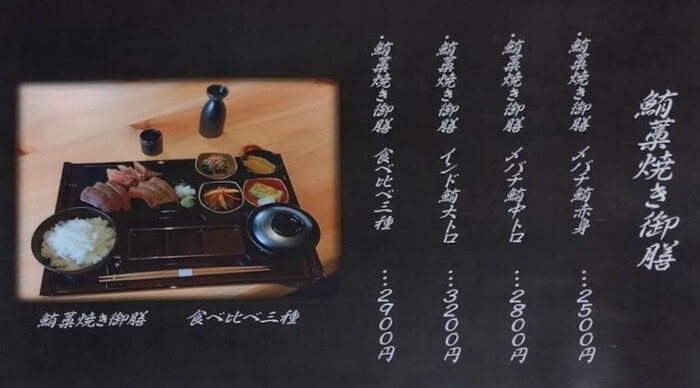 鮪藁焼き御膳
・鮪藁焼き御膳 メバチ鮪赤身 …2500円
・鮪藁焼き御膳 メバチ鮪中トロ …2800円
・鮪藁焼き御膳 インド鮪大トロ …3200円
・鮪藁焼き御膳 食べ比べ三種 …2900円
鮪藁焼き御膳 食べ比べ三種